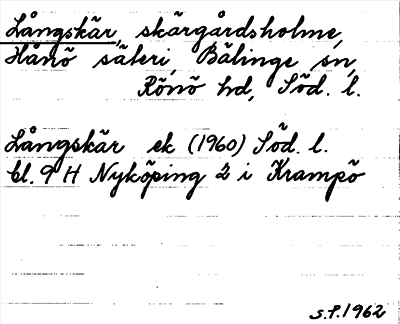 Långskär, skärgårdsholme,
Hånö säteri, Bälinge sn,
Rönö hd, Söd. l.
Långskär ek (1960) Söd. l.
bl. 9 H Nyköping 2 i Krampö
S.P. 1962